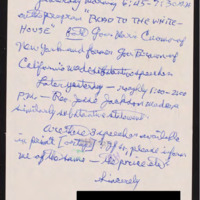 Saturday morning 6:45-7:30AM
program "ROAD TO THE WHITE-
HOUSE" Gov Mario Cuomo of
New York and former Gov Brown of
California substantive speeches
Later yesterday - roughly 1:00-2:00
P.M. - Rev. Jesse Jackson made a
similarly substantive statement.
Are these 3 speeches available
in print If so, please inform
me of the same - the price, etc.
Sincerely